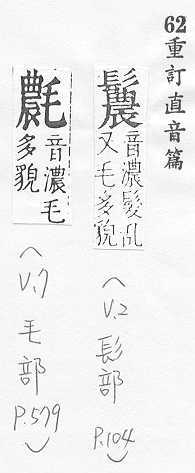 62 重訂直音篇
鬞
音濃髮乱
又毛多貌
(V.2 髟部 P.104)
音濃毛
多貌
(V.7 毛部 P.579)